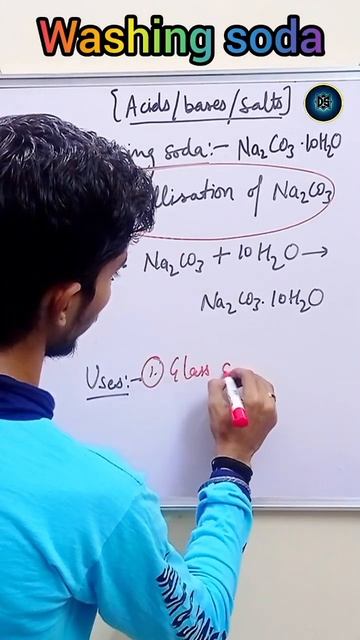 Washing soda
[Acids/bases/salts]
DS
soda:- Na₂CO₃·10H₂O
of Na₂CO₃
Na₂CO₃ + 10H₂O →
Na₂CO₃.10H₂O
Uses:- 1. Glass